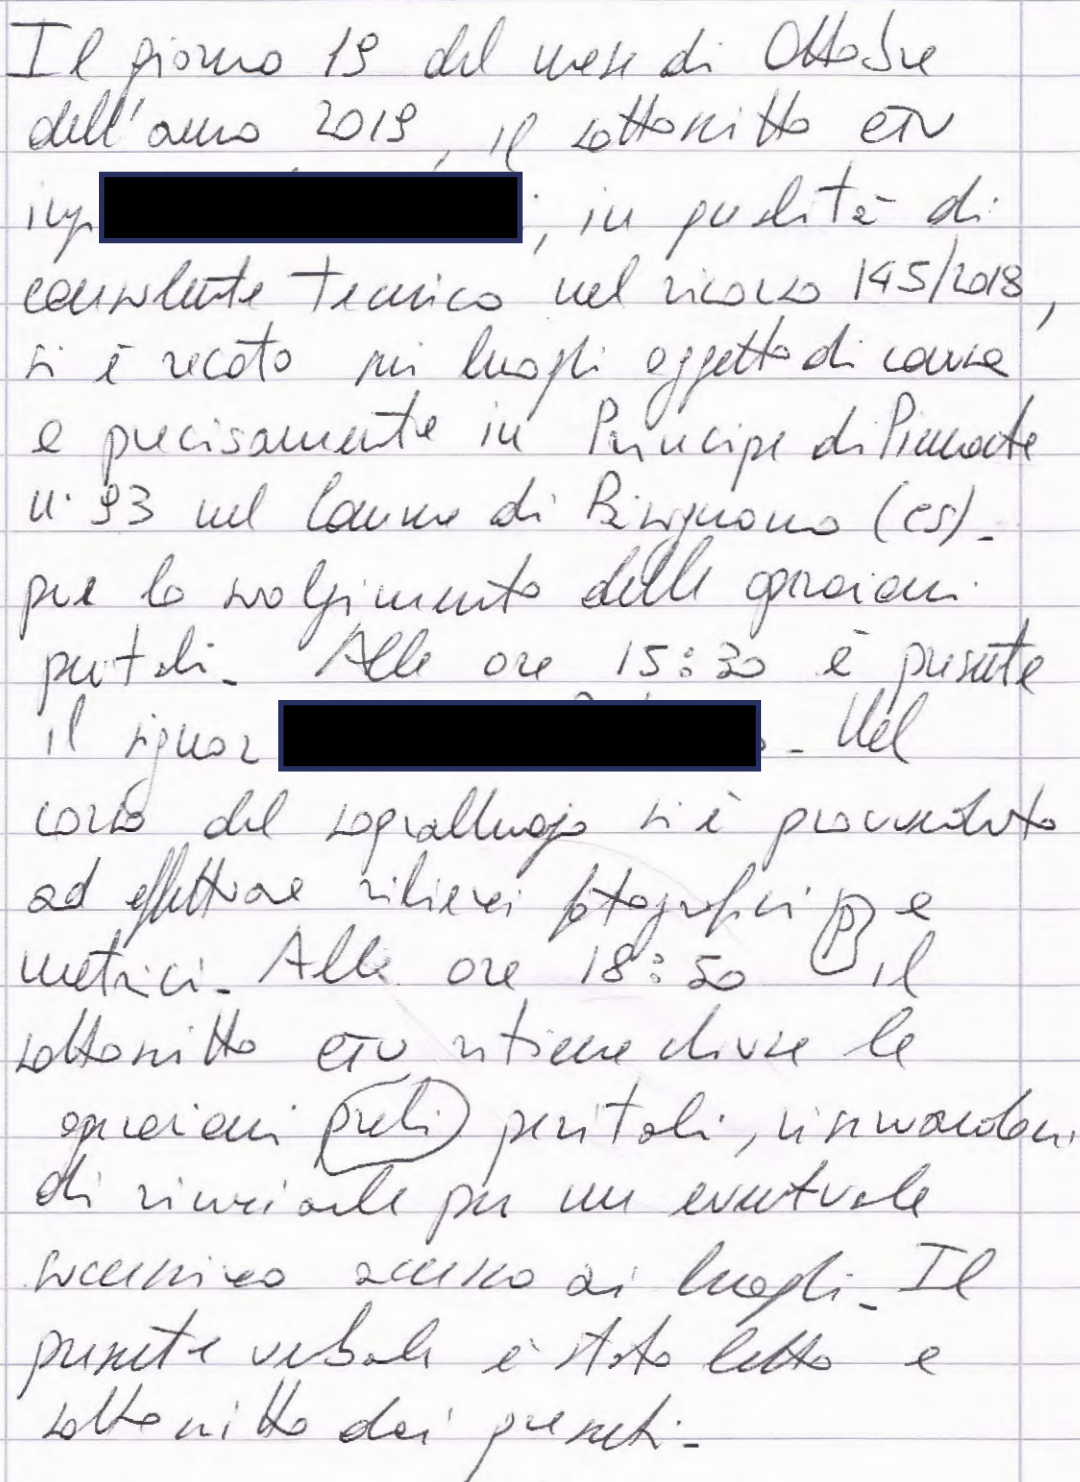 Il giorno 19 del mese di Ottobre
dell'anno 2019, il sottoscritto CTU
ing , in qualità di
consulente tecnico nel ricorso 145/2018,
si è recato sui luoghi oggetto di causa
e precisamente in Principe di Piemonte
n. 93 nel Comune di Bisignano (CS)-
per lo svolgimento delle operazioni
peritali- Alle ore 15:30 è presente
il signor - Nel
corso del sopralluogo si è provveduto
ad effettuare rilievi fotografici e
metrici- Alle ore 18:50 il
sottoscritto CTU ritiene chiuse le
operazioni peritali, riservandosi
di rinviarle per un eventuale
successivo accesso ai luoghi- Il
presente verbale è stato letto e
sottoscritto dai presenti-